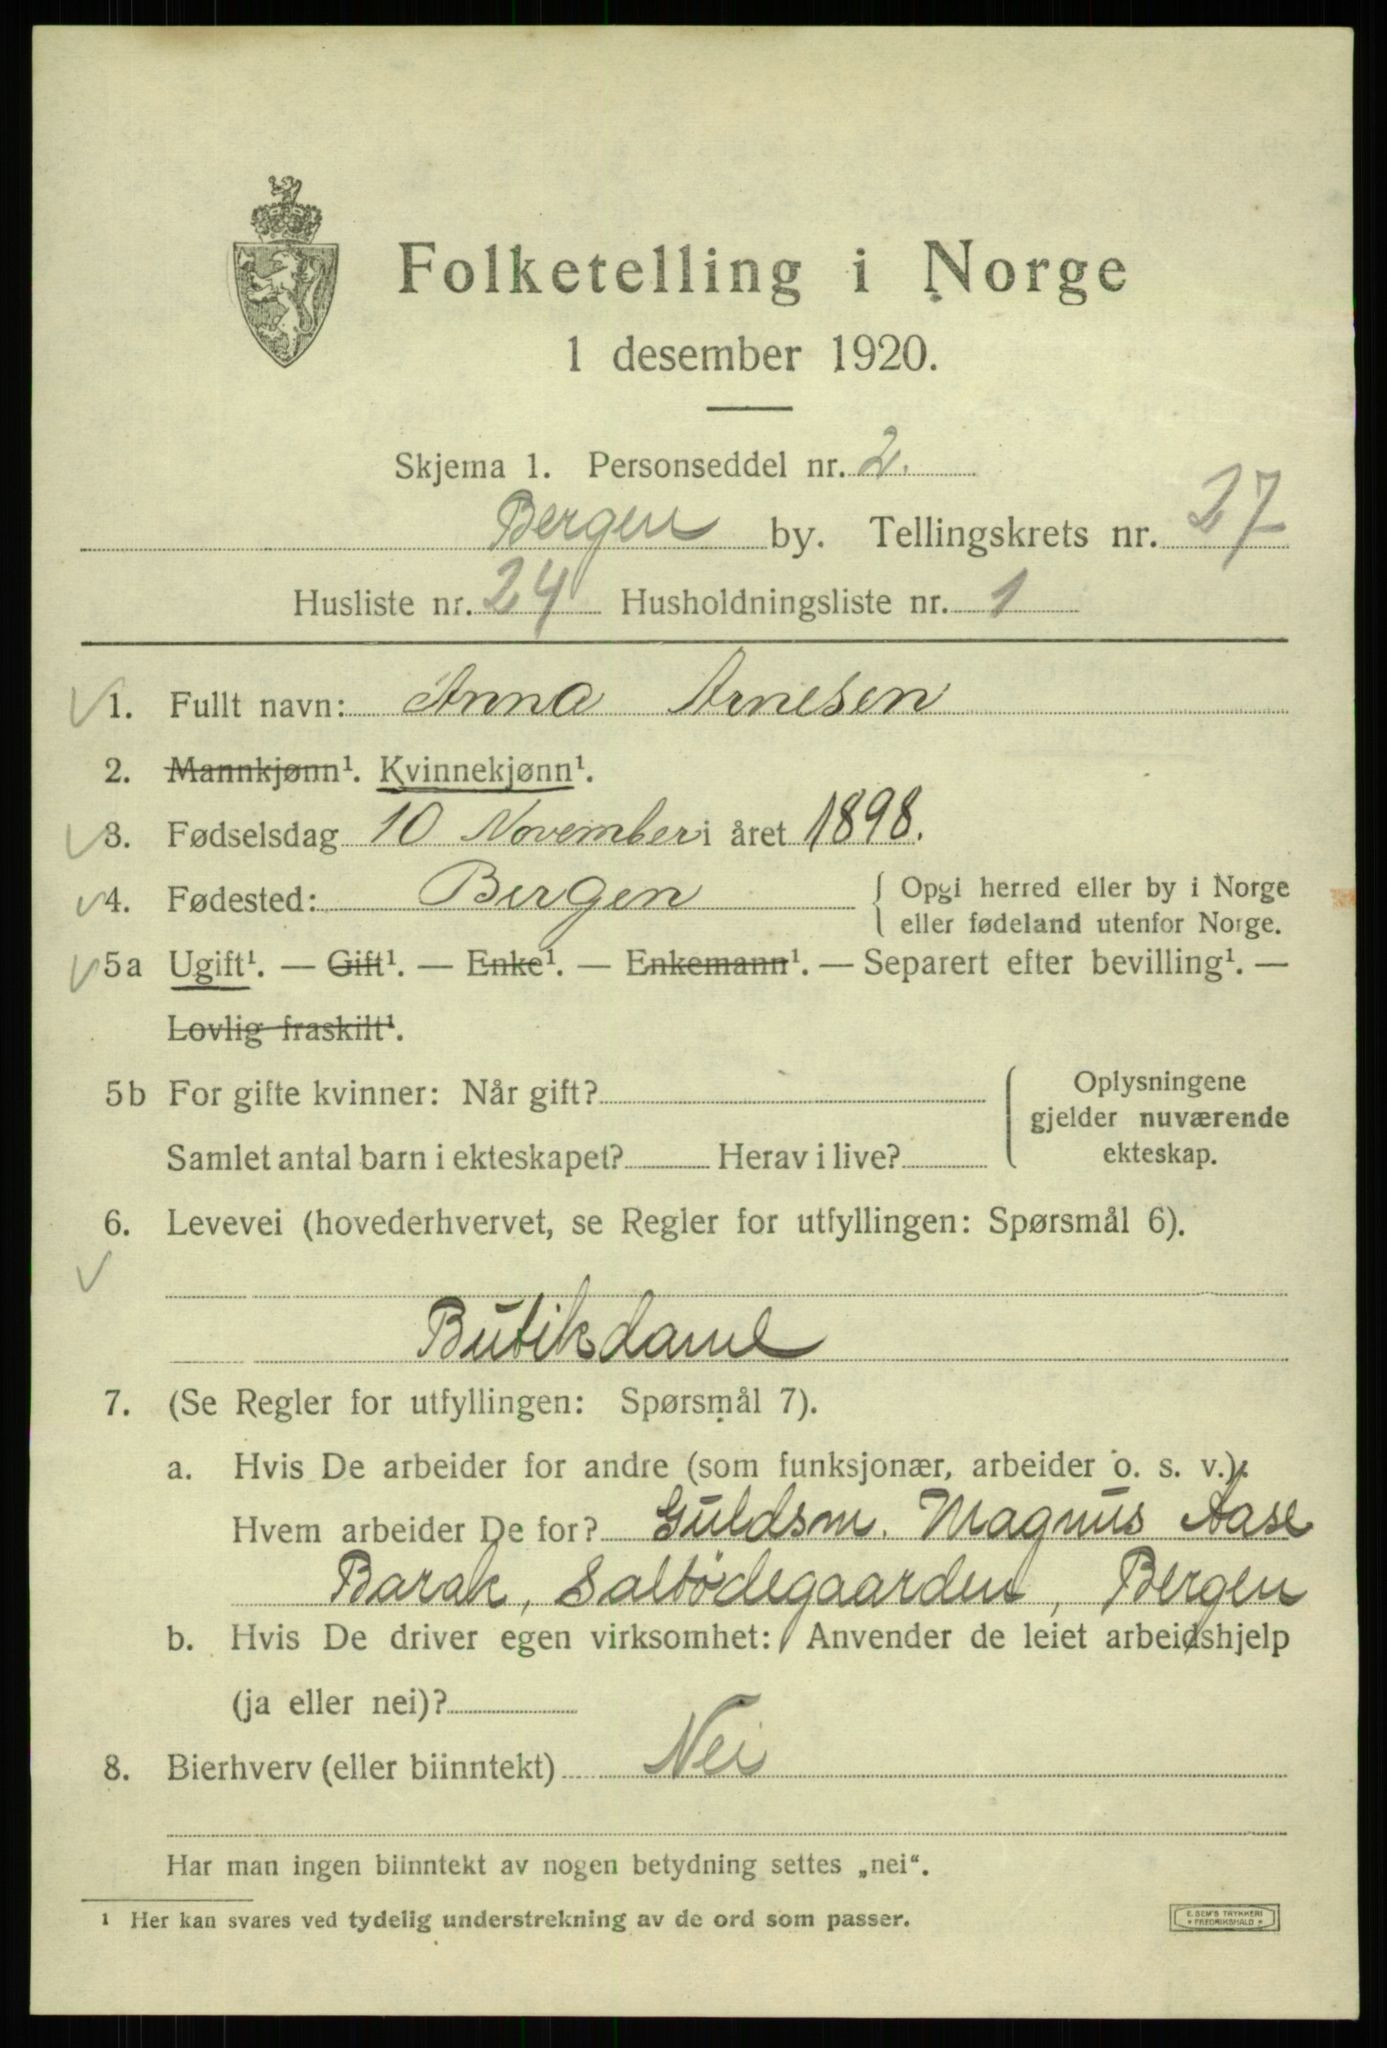 Folketelling i Norge
1 desember 1920.
Skjema 1. Personseddel nr. 2.
Bergen by. Tellingskrets nr. 27
Husliste nr. 24 Husholdningsliste nr. 1
1. Fullt navn: Anna Arnesen
2. Mannkjønn¹. Kvinnekjønn¹.
3. Fødselsdag 10 November i året 1898.
4. Fødested: Bergen { Opgi herred eller by i Norge
eller fødeland utenfor Norge.
5a Ugift¹. — Gift¹. — Enke¹. — Enkemann¹. — Separert efter bevilling¹. —
Lovlig fraskilt¹.
5b For gifte kvinner: Når gift? { Oplysningene
gjelder nuværende
Samlet antal barn i ekteskapet? Herav i live? ekteskap.
6. Levevei (hovederhvervet, se Regler for utfyllingen: Spørsmål 6).
Butikdame
7. (Se Regler for utfyllingen: Spørsmål 7).
a. Hvis De arbeider for andre (som funksjonær, arbeider o. s. v.):
Hvem arbeider De for? Guldsm. Magnus Aase
Barak, Saltödegaarden, Bergen
b. Hvis De driver egen virksomhet: Anvender de leiet arbeidshjelp
(ja eller nei)?
8. Bierhverv (eller biinntekt) Nei
Har man ingen biinntekt av nogen betydning settes „nei“.
¹ Her kan svares ved tydelig understrekning av de ord som passer.
E. SEM'S TRYKKERI
* FREDRIKSHALD *